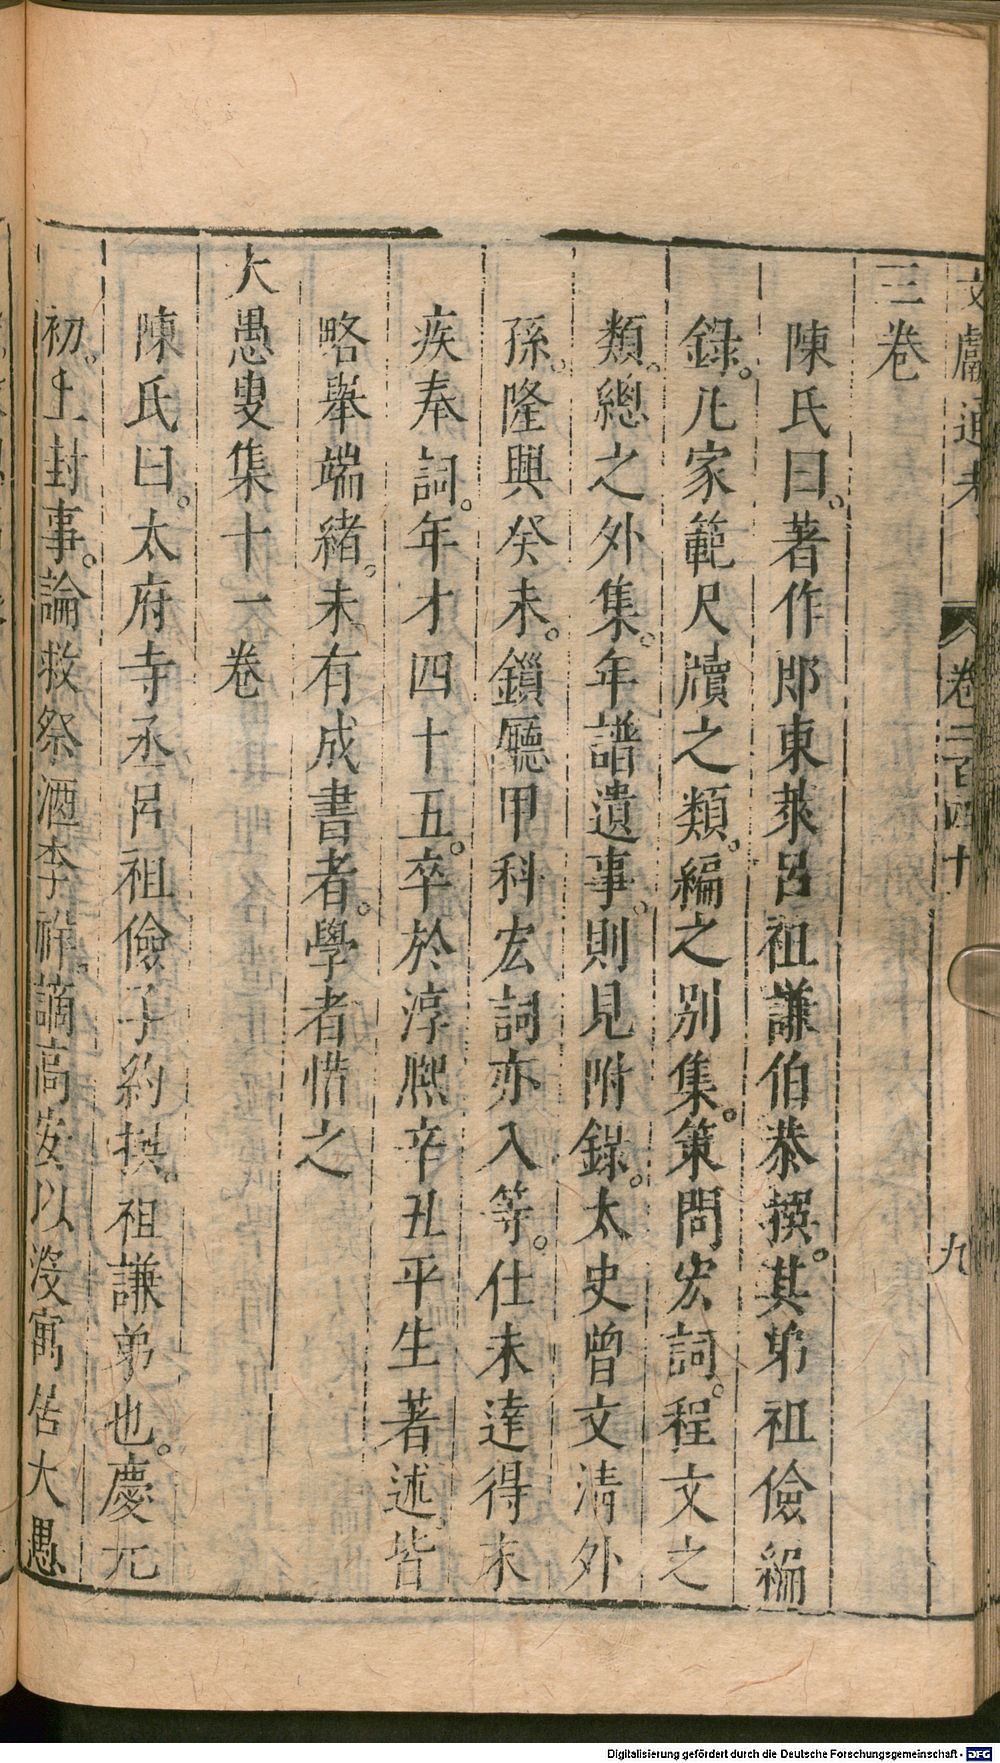 文獻通考 卷二百四十 九
三卷
陳氏曰。著作郎東萊呂祖謙伯恭撰。其弟祖儉編
錄。凡家範尺牘之類。編之別集。策問宏詞。程文之
類。總之外集。年譜遺事。則見附錄。太史曾文清外
孫。隆興癸未。鎖廳甲科宏詞亦入等。仕未達得末
疾奉詞。年才四十五。卒於淳熙辛丑平生著述皆
略舉端緒。未有成書者。學者惜之
大愚叟集十一卷
陳氏曰。太府寺丞呂祖儉子約撰。祖謙弟也。慶元
初。上封事。論救祭酒李祥。謫高安以沒寓居大愚
Digitalisierung gefördert durch die Deutsche Forschungsgemeinschaft - DFG